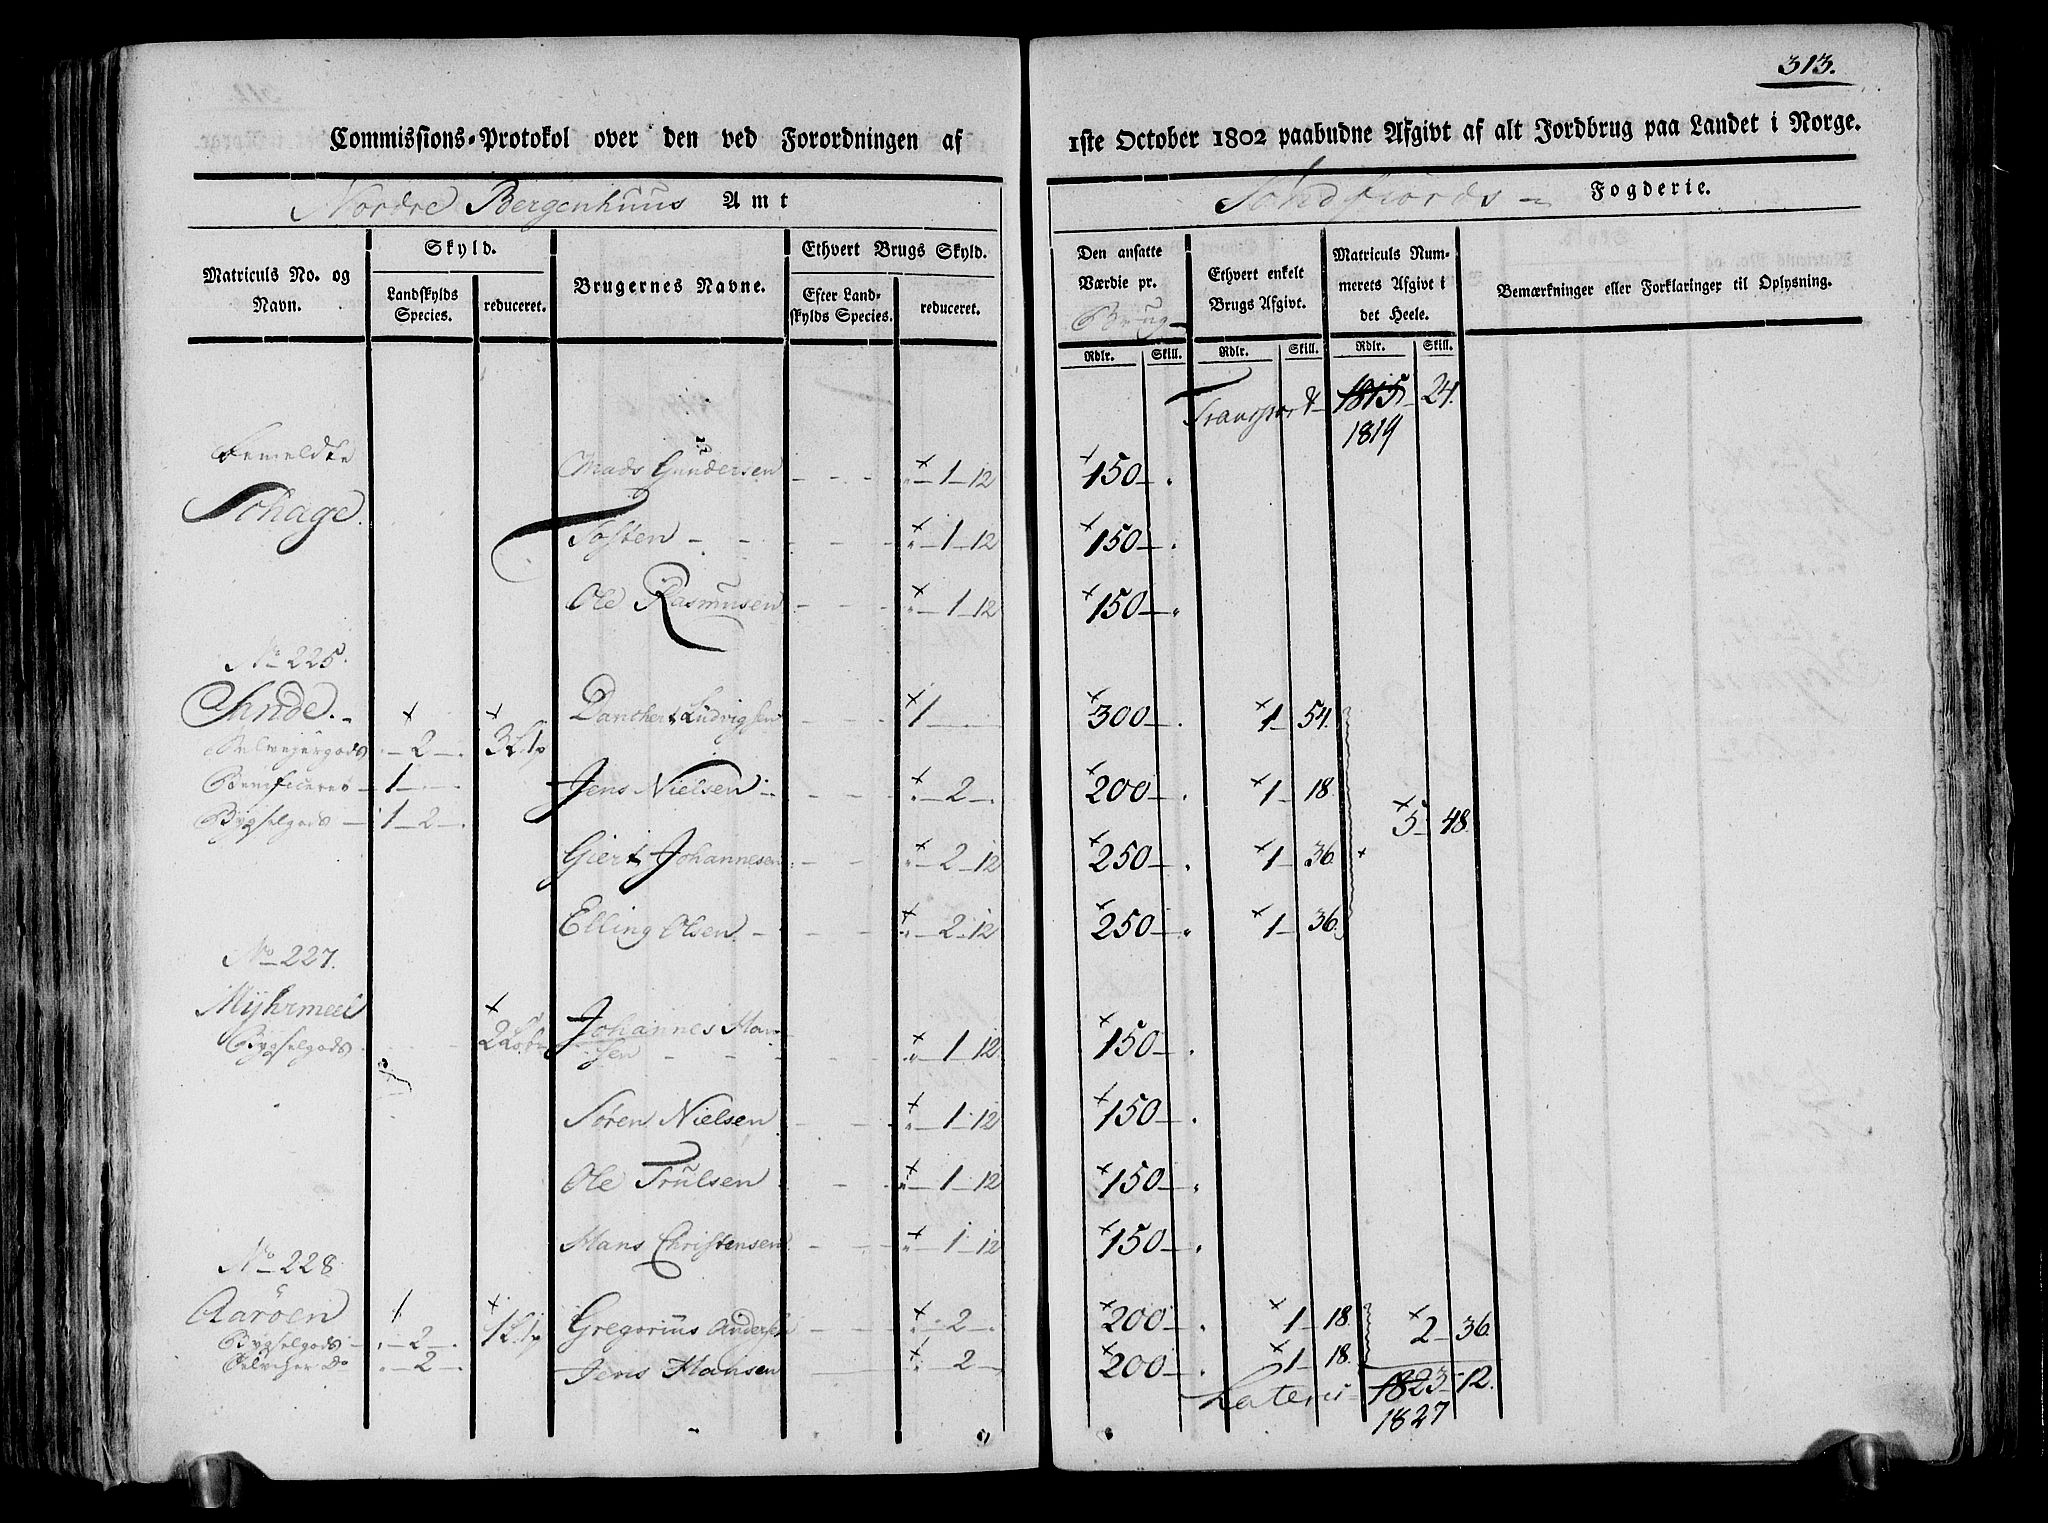 313.
Commissions-Protokol over den ved Forordningen af 1ste October 1802 paabudne Afgivt af alt Jordbrug paa Landet i Norge.
Nordre Bergenhuus Amt Fogderie.
Matriculs No. og Navn.
Skyld.
Landskylds Species.
reduceret.
Brugernes Navne.
Ethvert Brugs Skyld.
Efter Landskylds Species.
reduceret.
Den ansatte Værdie pr. Brug
Ethvert enkelt Brugs Afgivt.
Matriculs Nummerets Afgivt i det Heele.
Bemærkninger eller Forklaringer til Oplysning.
Rdlr. Skill. Rdlr. Skill. Rdlr. Skill.
Transport 1815 24.
1819
bemeldte
Schage. Mads Gundersen 1 12 150
Tosten 1 12 150
Ole Rasmusen 1 12 150
No 225.
Sande. Danchert Ludvigsen 1 300 1 54.
Selvejergods 2
Beneficeret 1 Jens Nielsen 2 200 1 18
Bygselgods 1 2 5 48.
Giert Johannesen 2 12 250 1 36
Elling Olsen 2 12 250 1 36
No 227.
Myhrmeel Johannes Han
Bygselgods sen 1 12 150
Sören Nielsen 1 12 150
Ole Trulsen 1 12 150
Hans Christensen 1 12 150
No 228
Aaröen 1 Gregorius Andersen 2 200 1 18. 2 36
Bygselgods 2
Selveier do 2 Jens Hansen 2 200 1 18.
Lateris 1823 12.
1827